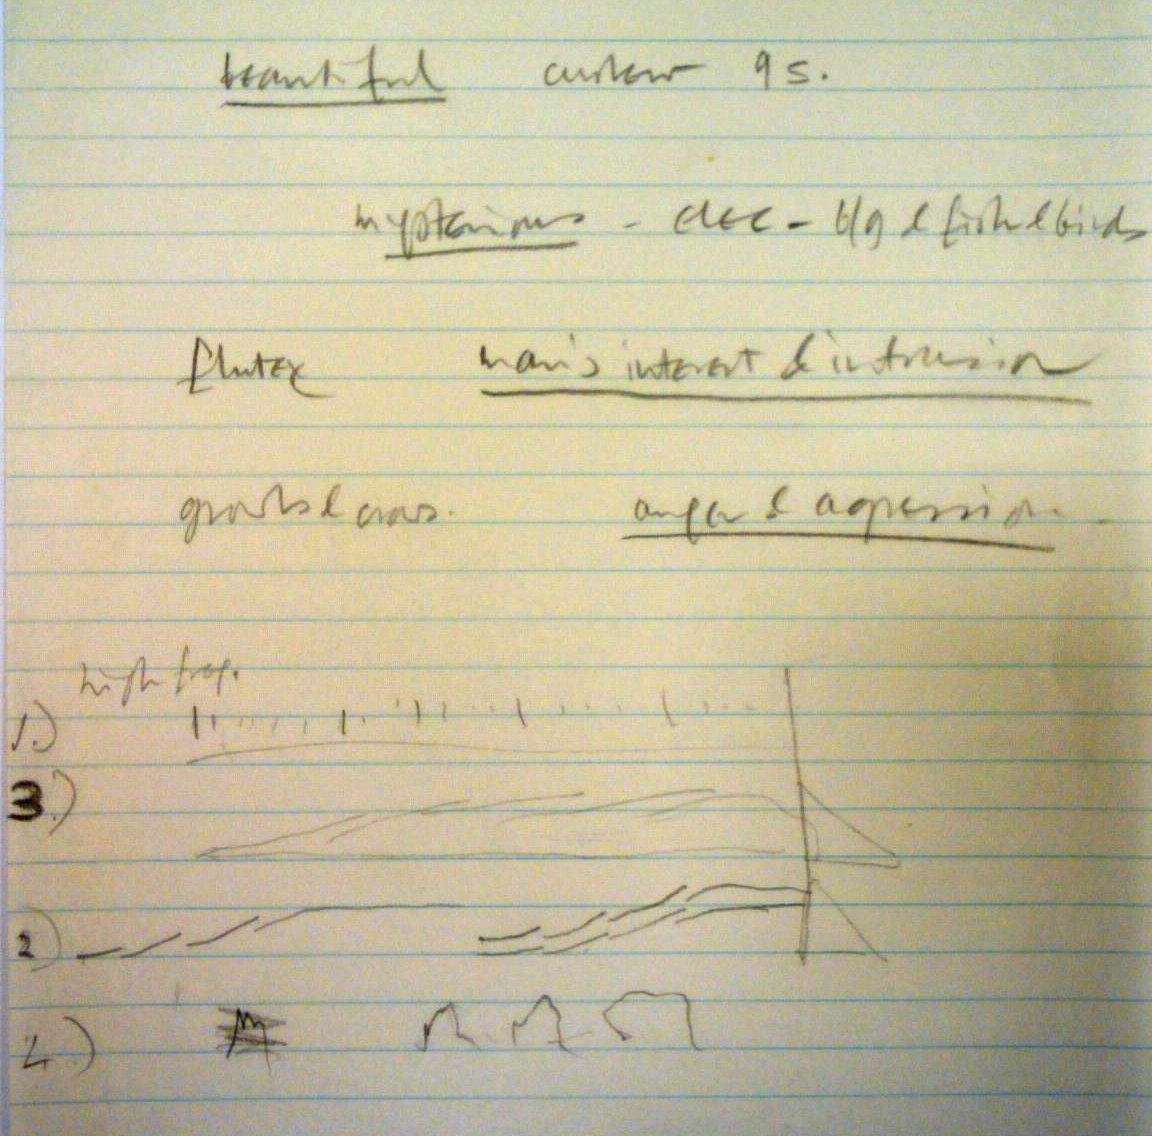 beautiful curlew 9 s.
mysterious - elec - b/g & fish & birds
flutex man's interest & intrusion
growls & crows. anger & aggression
high freq.
1.)
3.)
2)